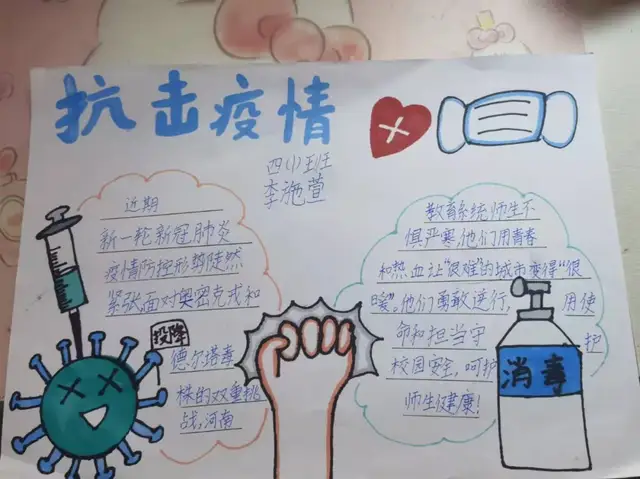 抗击疫情
四(1)班
李施萱
近期
新一轮新冠肺炎
疫情防控形势徒然
紧张面对奥密克戎和
投降
德尔塔毒
株的双重挑
战,河南
教育系统师生不
惧严寒,他们用青春
和热血让“很难”的城市变得“很
暖”。他们勇敢逆行,用使
命和担当守护
校园安全,呵护
师生健康!
消毒